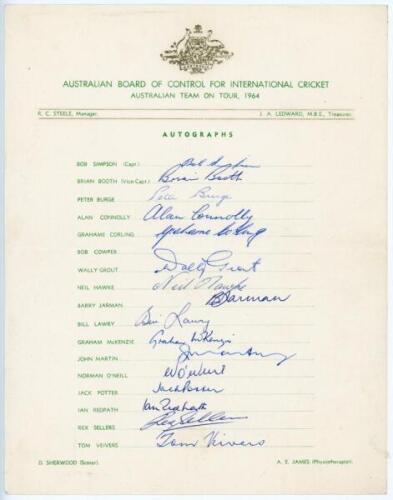 AUSTRALIAN BOARD OF CONTROL FOR INTERNATIONAL CRICKET
AUSTRALIAN TEAM ON TOUR, 1964
R. C. STEELE, Manager. J. A. LEDWARD, M.B.E., Treasurer.
AUTOGRAPHS
BOB SIMPSON (Capt.) Bob Simpson
BRIAN BOOTH (Vice-Capt.) Brian Booth
PETER BURGE Peter Burge
ALAN CONNOLLY Alan Connolly
GRAHAME CORLING Grahame Corling
BOB COWPER
WALLY GROUT Wally Grout
NEIL HAWKE Neil Hawke
BARRY JARMAN BJarman
BILL LAWRY Bill Lawry
GRAHAM McKENZIE Graham McKenzie
JOHN MARTIN J Martin
NORMAN O'NEILL N O'Neill
JACK POTTER Jack Potter
IAN REDPATH Ian Redpath
REX SELLERS Rex Sellers
TOM VEIVERS Tom Veivers
D. SHERWOOD (Scorer). A. E. JAMES (Physiotherapist).